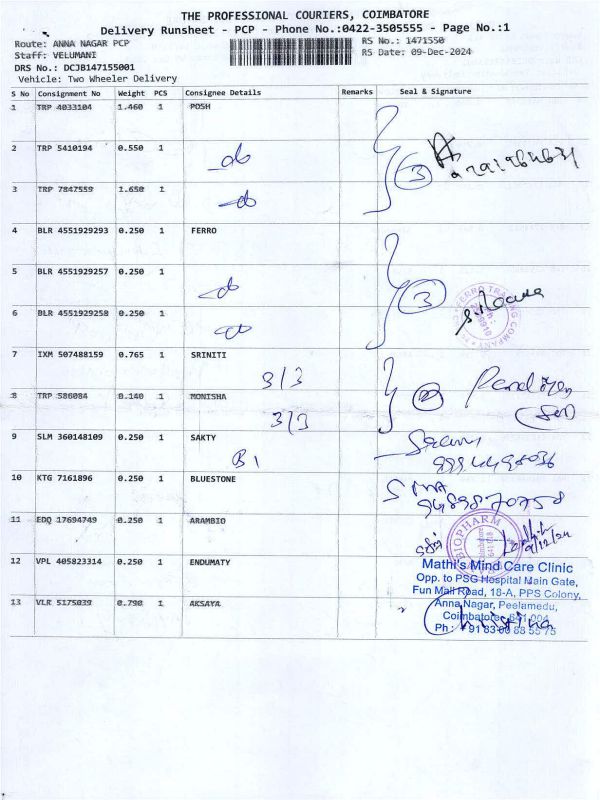 THE PROFESSIONAL COURIERS, COIMBATORE
Delivery Runsheet - PCP - Phone No.:0422-3505555 - Page No.:1
Route: ANNA NAGAR PCP
Staff: VELUMANI
DRS No.: DCJB147155001
Vehicle: Two Wheeler Delivery
RS No.: 1471550
RS Date: 09-Dec-2024
S No Consignment No Weight PCS Consignee Details Remarks Seal & Signature
1 TRP 4033104 1.460 1 POSH
2 TRP 5410194 0.550 1
3 TRP 7847559 1.650 1
3
4 BLR 4551929293 0.250 1 FERRO
5 BLR 4551929257 0.250 1
6 BLR 4551929258 0.250 1
3
FERRO TRADING COMPANY
7 IXM 507488159 0.765 1 SRINITI
3/3
8 TRP 586084 0.140 1 MONISHA
3/3
2
9 SLM 360148109 0.250 1 SAKTY
B1
10 KTG 7161896 0.250 1 BLUESTONE
11 EDQ 17694749 0.250 1 ARAMBIO
BIOPHARM
Coimbatore
9/12/24
12 VPL 405823314 0.250 1 ENDUMATY
Mathi's Mind Care Clinic
Opp. to PSG Hospital Main Gate,
Fun Mall Road, 18-A, PPS Colony,
Anna Nagar, Peelamedu,
Coimbatore - 641 004
Ph : +91 83 00 88 55 75
13 VLR 5175039 0.790 1 AKSAYA
Christina